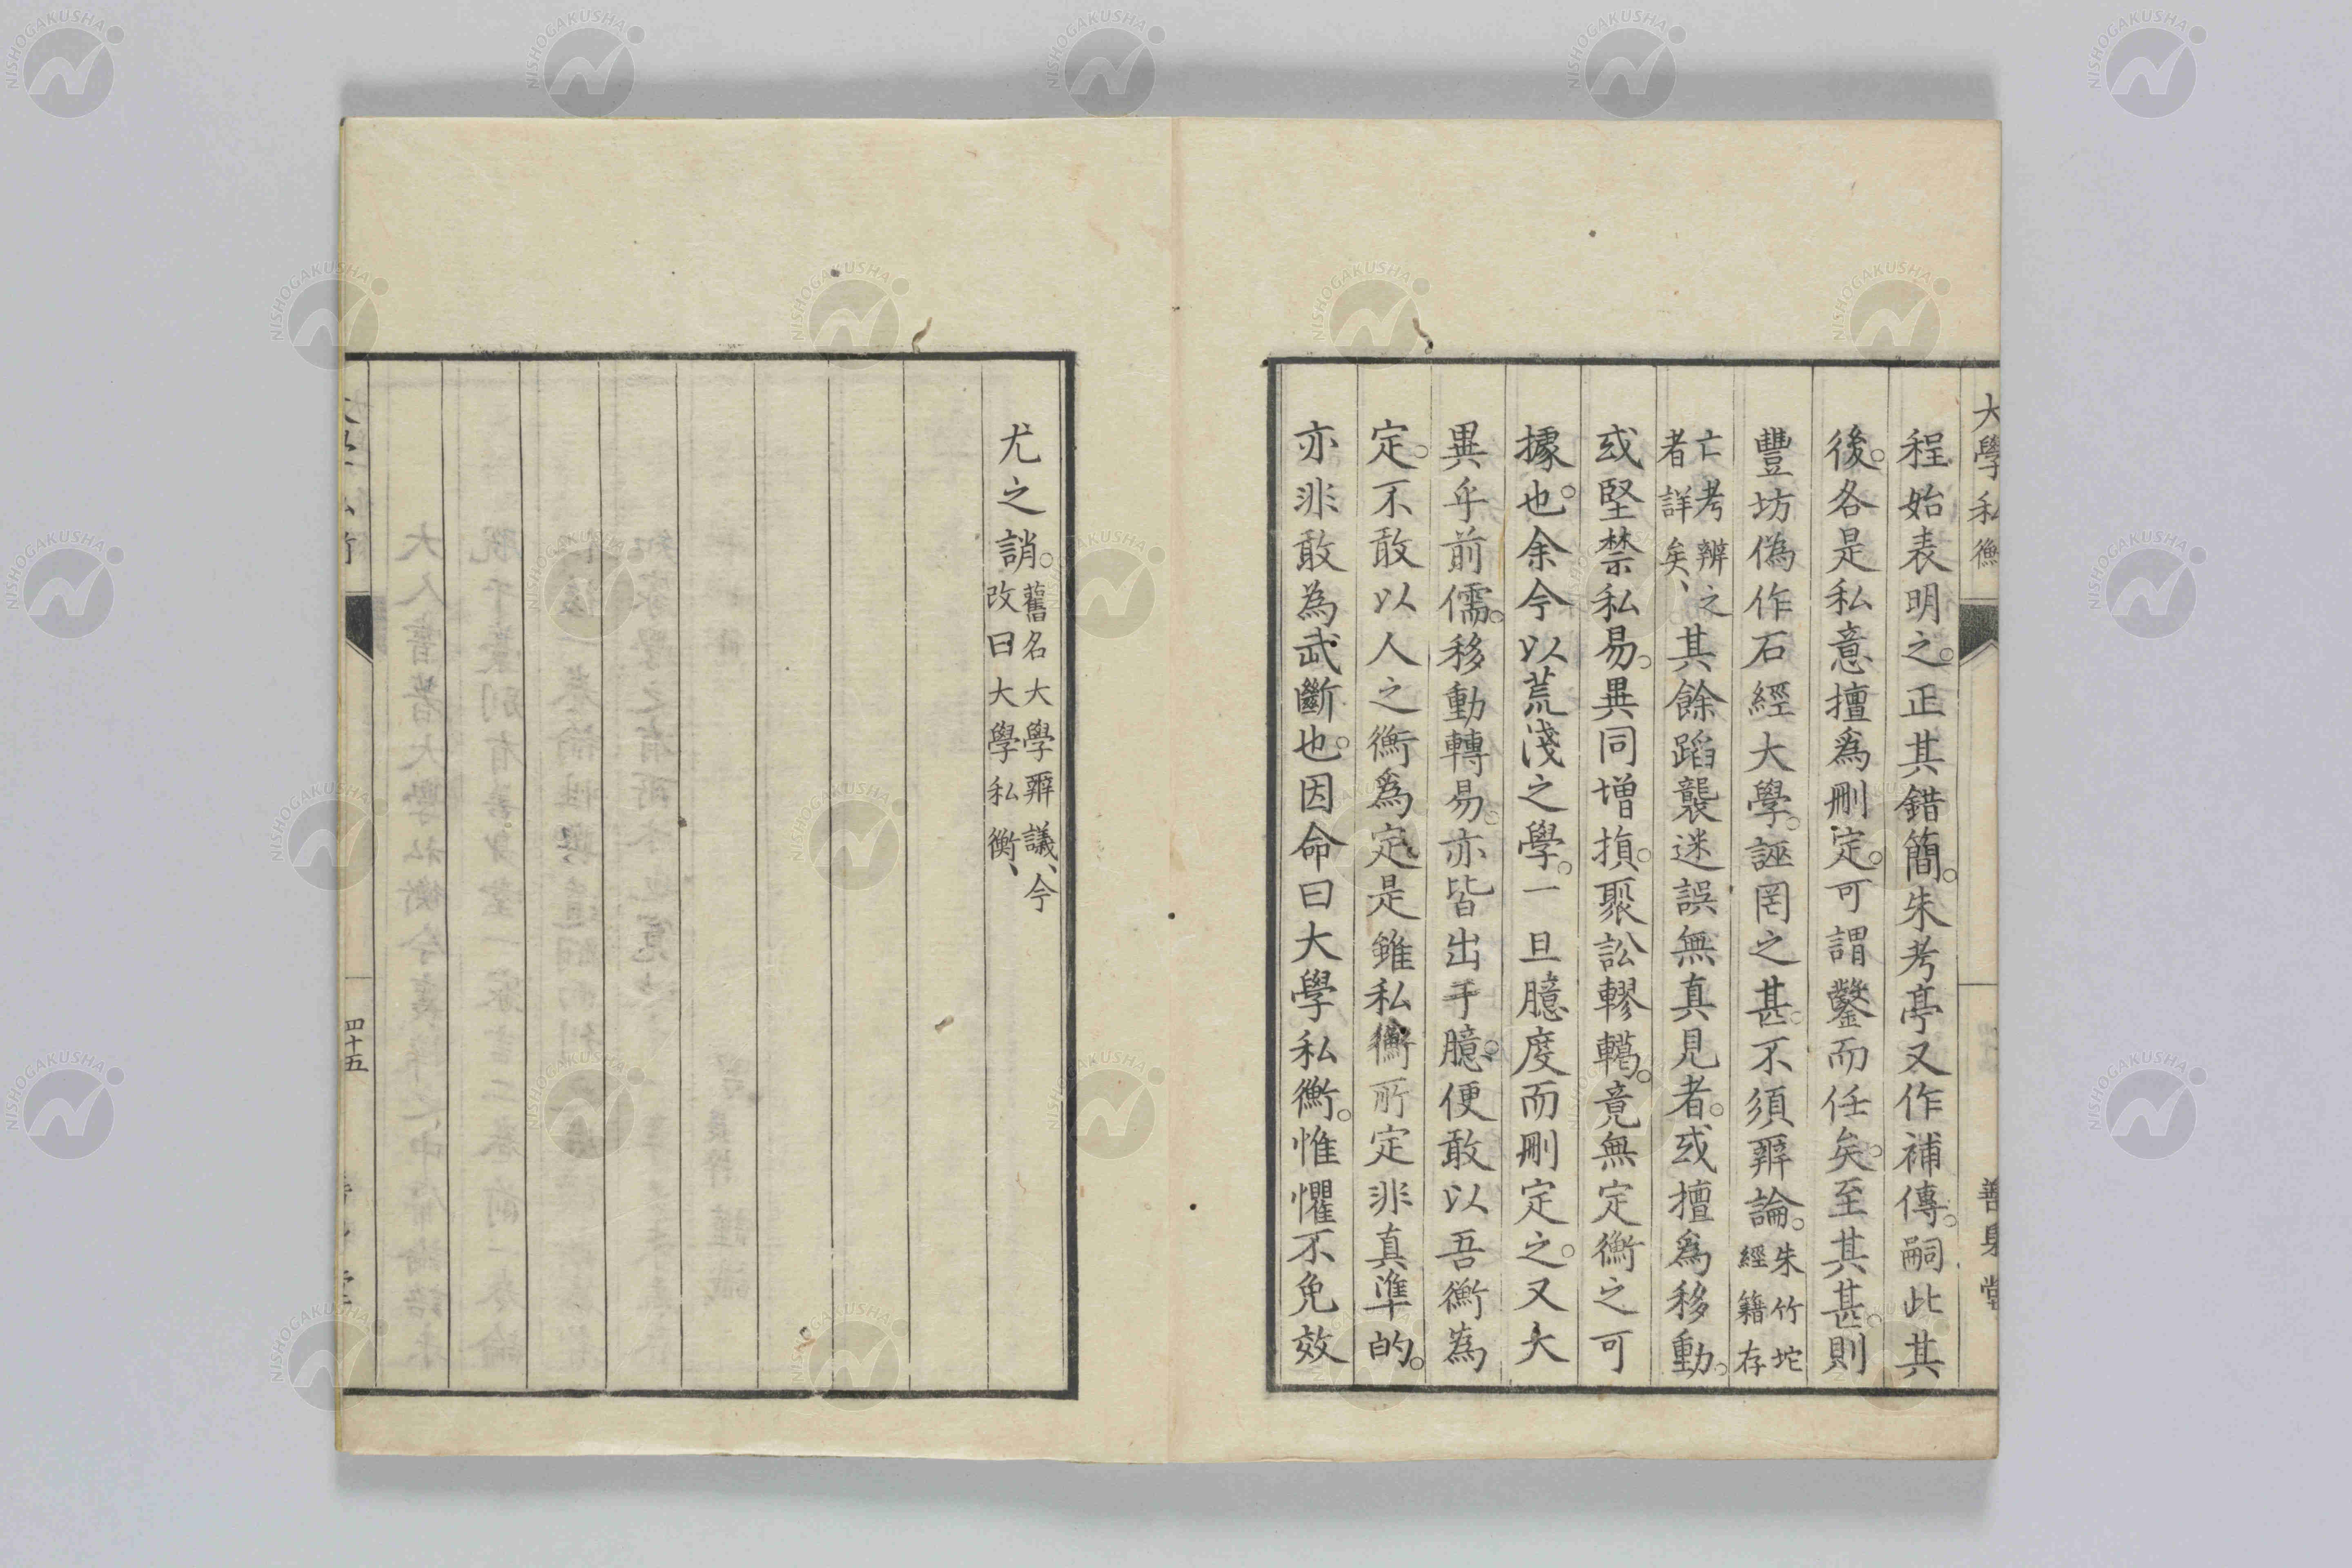 大學私衡
善身堂
程始表明之。正其錯簡。朱考亭又作補傳。嗣此其
後。各是私意擅爲刪定。可謂鑿而任矣。至其甚。則
豐坊偽作石經大學。誣罔之甚。不須辭論。朱竹垞經籍存
亡考辨之者詳矣、其餘蹈襲迷誤無真見者。或擅爲移動。
或堅禁私易。異同增損。聚訟轇轕。竟無定衡之可
據也。余今以荒淺之學。一旦臆度而刪定之。又大
異乎前儒。移動轉易。亦皆出手臆。便敢以吾衡為
定。不敢以人之衡爲定。是雖私衡所定非真準的。
亦非敢為武斷也。因命曰大學私衡。惟懼不免效
尤之誚。舊名大學辨議、今改曰大學私衡、
四十五
NISHOGAKUSHA